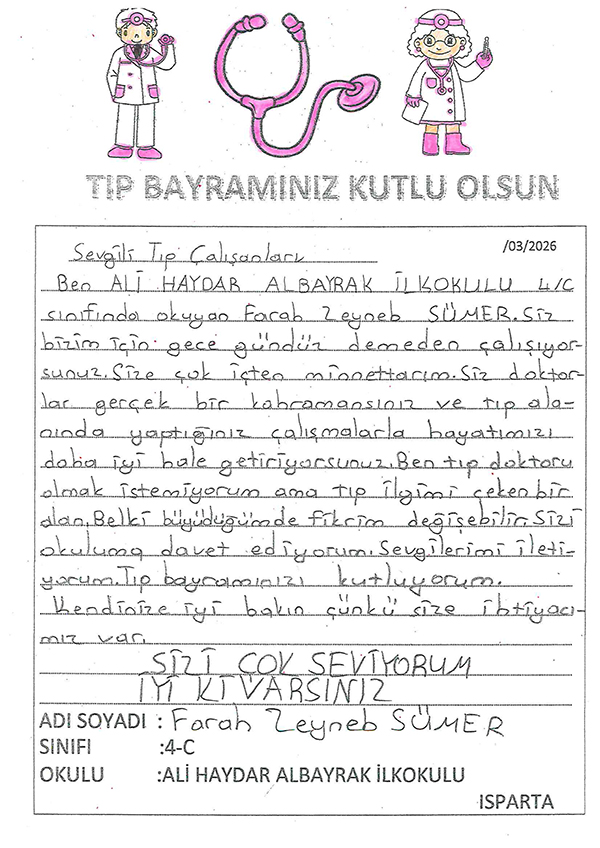 TIP BAYRAMINIZ KUTLU OLSUN
/03/2026
Sevgili Tıp Çalışanları
Ben ALİ HAYDAR ALBAYRAK İLKOKULU 4/C
sınıfında okuyan Farah Zeyneb SÜMER. Siz
bizim için gece gündüz demeden çalışıyor-
sunuz. Size çok içten minnettarım. Siz doktor-
lar gerçek bir kahramansınız ve tıp ala-
nında yaptığınız çalışmalarla hayatımızı
daha iyi hale getiriyorsunuz. Ben tıp doktoru
olmak istemiyorum ama tıp ilgimi çeken bir
alan. Belki büyüdüğümde fikrim değişebilir. Sizi
okuluma davet ediyorum. Sevgilerimi ileti-
yorum. Tıp bayramınızı kutluyorum.
Kendinize iyi bakın çünkü size ihtiyacı-
mız var.
SİZİ ÇOK SEVİYORUM
İYİ Kİ VARSINIZ
ADI SOYADI : Farah Zeyneb SÜMER
SINIFI :4-C
OKULU :ALİ HAYDAR ALBAYRAK İLKOKULU
ISPARTA